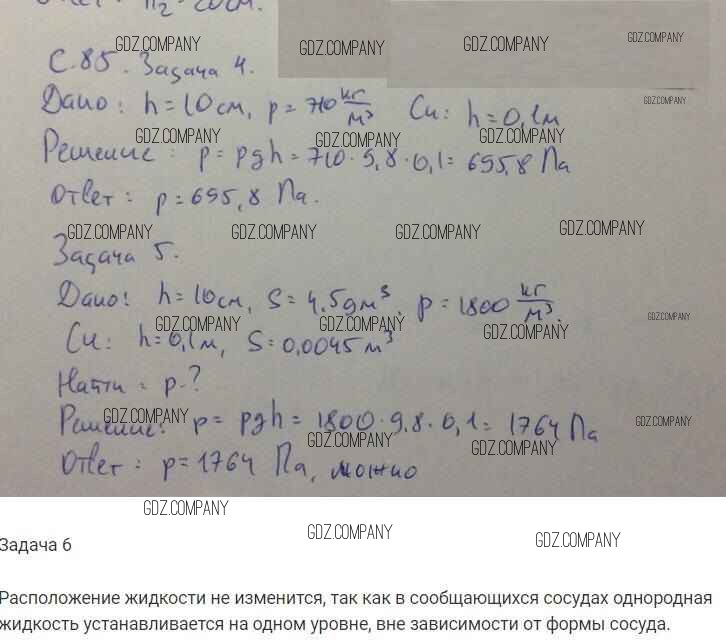 GDZ.COMPANY GDZ.COMPANY GDZ.COMPANY GDZ.COMPANY
С.85. Задача 4.
Дано: h = 10 см, p = 710 кг/м³ Си: h = 0,1 м
GDZ.COMPANY
GDZ.COMPANY GDZ.COMPANY GDZ.COMPANY
Решение: p = pgh = 710 · 9,8 · 0,1 = 695,8 Па
Ответ: p = 695,8 Па.
GDZ.COMPANY GDZ.COMPANY GDZ.COMPANY GDZ.COMPANY
Задача 5.
Дано: h = 10 см, S = 4,5 дм³, p = 1800 кг/м³.
GDZ.COMPANY GDZ.COMPANY GDZ.COMPANY GDZ.COMPANY
Си: h = 0,1 м, S = 0,0045 м³
Найти: p - ?
GDZ.COMPANY GDZ.COMPANY GDZ.COMPANY GDZ.COMPANY
Решение: p = pgh = 1800 · 9,8 · 0,1 = 1764 Па
Ответ: p = 1764 Па, можно
GDZ.COMPANY GDZ.COMPANY GDZ.COMPANY
Задача 6
Расположение жидкости не изменится, так как в сообщающихся сосудах однородная
жидкость устанавливается на одном уровне, вне зависимости от формы сосуда.